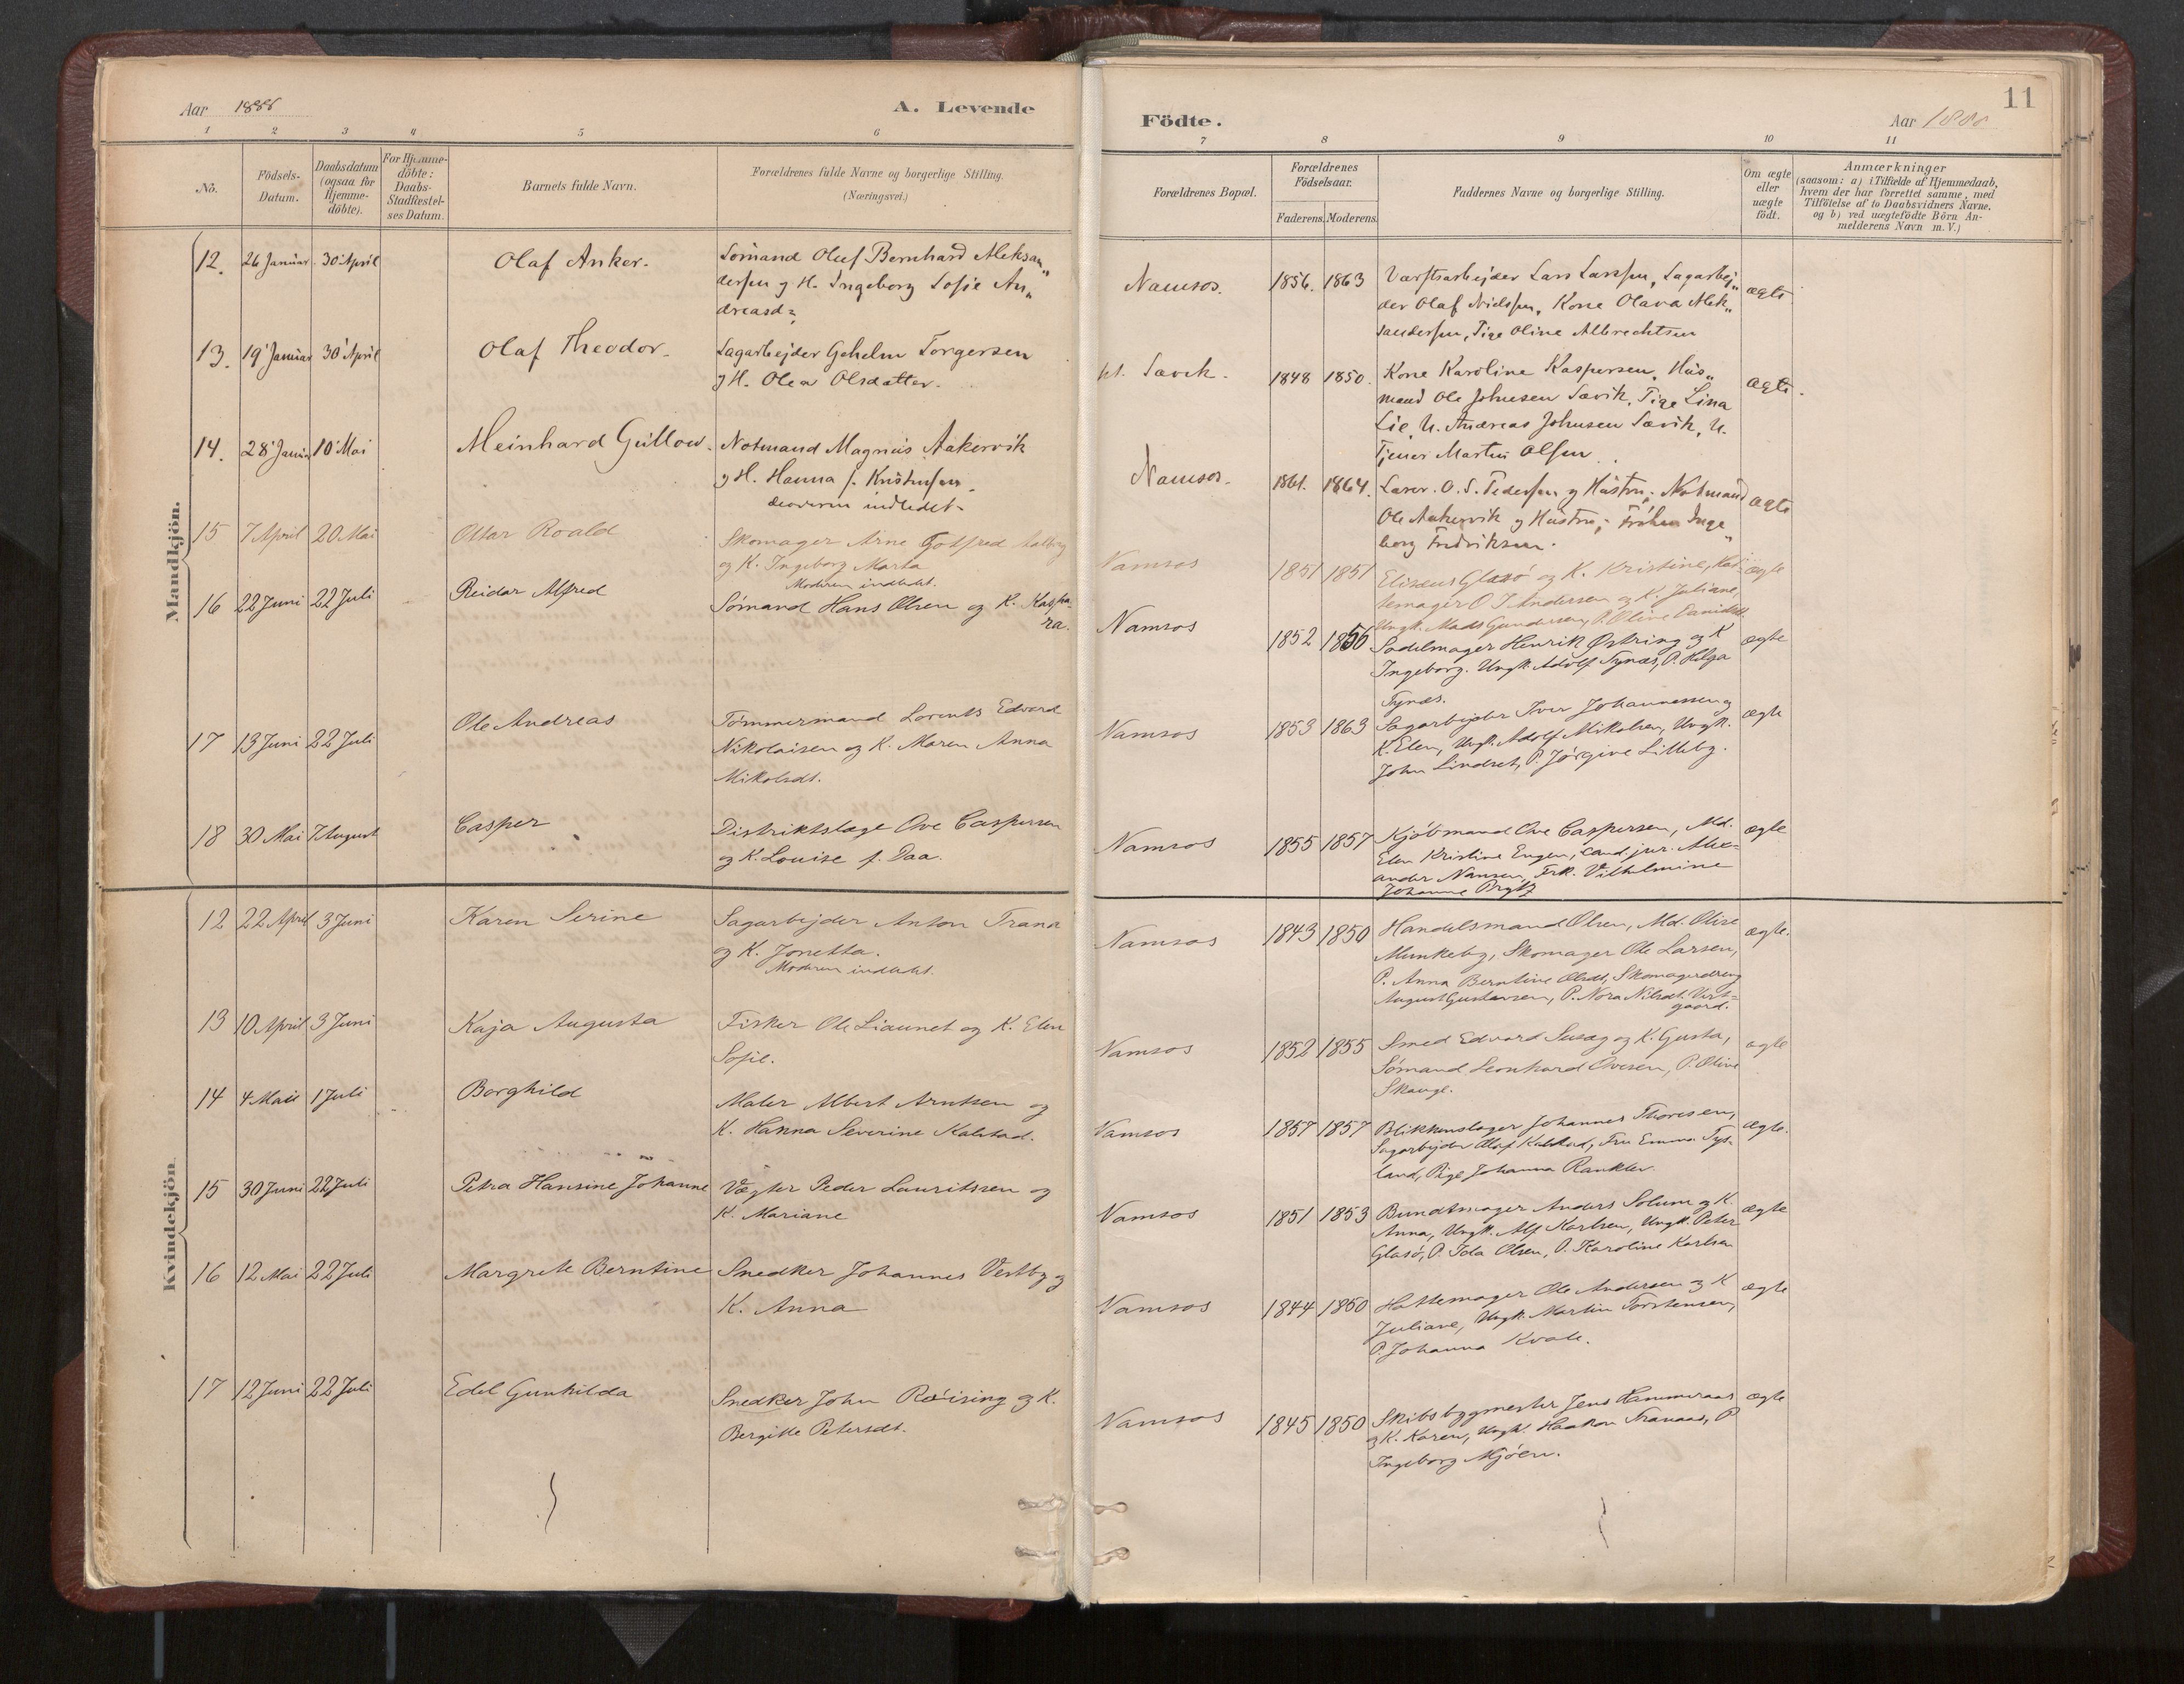 Aar 1886
A. Levende
1 2 3 4 5 6
No.
Födsels-
Datum.
Daabsdatum
(ogsaa for
Hjemme-
döbte).
For Hjemme-
döbte:
Daabs-
Stadfæstel-
ses Datum.
Barnets fulde Navn.
Forældrenes fulde Navne og borgerlige Stilling.
(Næringsvei.)
Mandkjön.
12. 26 Januar 30 April Olaf Anker. Sømand Oluf Bernhard Aleksan„
dersen og H. Ingeborg Sofie An„
dreasd
13. 19 Januar 30 April Olaf Theodor. Sagarbejder Gehelm Torgersen
og H. Olea Olsdatter.
14. 28 10 Mai Meinhard Notmand Magnus Aakervik
og H. Hanna f. Kristensen
indledet.
15 7 April 20 Mai Ottar Roald Skomager Arne Gotfred
og K. Ingeborg Marta
Moderen indledet.
16 22 Juni 22 Juli Reidar Alfred Sømand Hans Olsen og K. Kaspa-
ra.
17 13 Juni 22 Juli Ole Andreas Tømmermand Lorents Edvard
Nikolaisen og K. Maren Anna
Mikolsdt.
18 30 Mai 7 August Casper Distriktslæge Ove Caspersen
og K. Louise f. Daa.
Kvindekjön
12 22 April 3 Juni Karen Serine Sagarbejder Anton Trana
og K. Jonetta.
Moderen indledet.
13 10 April 3 Juni Kaja Augusta Fisker Ole Liaunet og K. Elen
Sofie.
14 4 Mai 1 Juli Borghild Maler Albert Arntsen og
K. Hanna Severine Kalstad.
15 30 Juni 22 Juli Petra Hansine Johanne Vægter Peder Lauritssen og
K. Mariane
16 12 Mai 22 Juli Margrete Berntine Snedker Johannes Vestby og
K. Anna
17 12 Juni 22 Juli Edel Gunhilda Snedker John Røising og K.
Bergitte Petersdt.
11
Födte.
Aar 1886
7 8 9 10 11
Forældrenes Bopæl.
Forældrenes
Födselsaar.
Faderens. Moderens.
Faddernes Navne og borgerlige Stilling.
Om ægte
eller
uægte
födt.
Anmærkninger
(saasom: a) i Tilfælde af Hjemmedaab,
hvem der har forrettet samme, med
Tilföielse af to Daabsvidners Navne,
og b) ved uægtefödte Börn An-
melderens Navn m. V.)
Namsos. 1856. 1863 Værftsarbejder Lars Larssen, Sagarbej„ ægte
der Olaf Nielssen, Kone Olava Alek„
sandersen, Pige Oline Albrechtsen
Sævik. 1848 1850. Kone Karoline Kaspersen, Hus„ ægte
mand Ole Johnesen Sævik, Pige Lina
Lie, U. Andreas Johnsen Sævik, U.
Tjener Martin Olsen
Namsos. 1861. 1864. Lærer O. S. Pedersen og Hustru, Notmand ægte
Ole Aakervik og Hustru, Frøken Inge„
borg Fredriksen.
Namsos 1851 1851 Elisæus Glasø og K. Kristine, Hat- ægte
temager O J Andersen og K. Juliane,
Ungk. Mads Gundersen, P. Oline
Namsos 1852 1856 Sadelmager Henrik Østring og K ægte
Ingeborg. Ungk. Adolf Tynæs, P. Helga
Tynæs.
Namsos 1853 1863 Sagarbejder Iver Johannessen og ægte
K. Elen, Ungk. Adolf Mikalsen, Ungk.
John Lindset, P. Jørgine Lilleby.
Namsos 1855 1857 Kjøbmand Ove Caspersen, Md. ægte
Elen Kristine Engen, cand. jur. Alex-
ander Nansen, Frk. Vilhelmine
Johanne
Namsos 1843 1850 Handelsmand Olsen, Md. Olise ægte.
Munkeby, Skomager Ole Larsen,
P. Anna Berntine Olsdt, Skomagerdreng
August Gustavsen, P. Nora Nilsdt. Vest-
gaard.
Namsos 1852 1855 Smed Edvard Susæg og K. Gusta, ægte
Sømand Leonhard Ovesen, P. Oline
Skauge.
Namsos 1857 1857 Blikkenslager Johannes Thoresen, ægte.
Sagarbejder Olaf Kalstad, Fru Emma
land, Pige Johanna
Namsos 1851 1853 Bundtmager Anders Solum og K. ægte
Anna, Ungk. Alf Karlsen, Ungk. Peter
Glasø, P. Ida Olsen, P. Karoline Karlsen
Namsos 1844 1850 Hattemager Ole Andersen og K ægte
Juliane, Ungk. Martin Torstensen,
P. Johanna Kvale.
Namsos 1845 1850 Skibsbygmester Jens Hammeraas ægte
og K. Karen, Ungk. Haakon Tranaas, P
Ingeborg Mjøen.